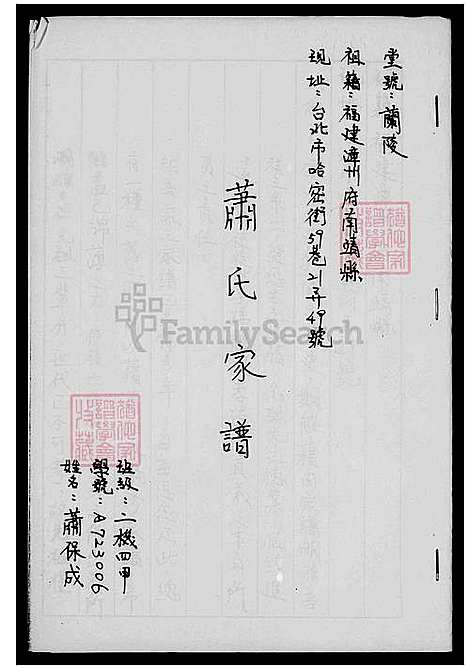 堂號：蘭陵
祖籍：福建漳州府南靖縣
現址：台北市哈密街59巷21弄49號
蕭氏家譜
班級：二機四甲
學號：A723006
姓名：蕭保成
FamilySearch